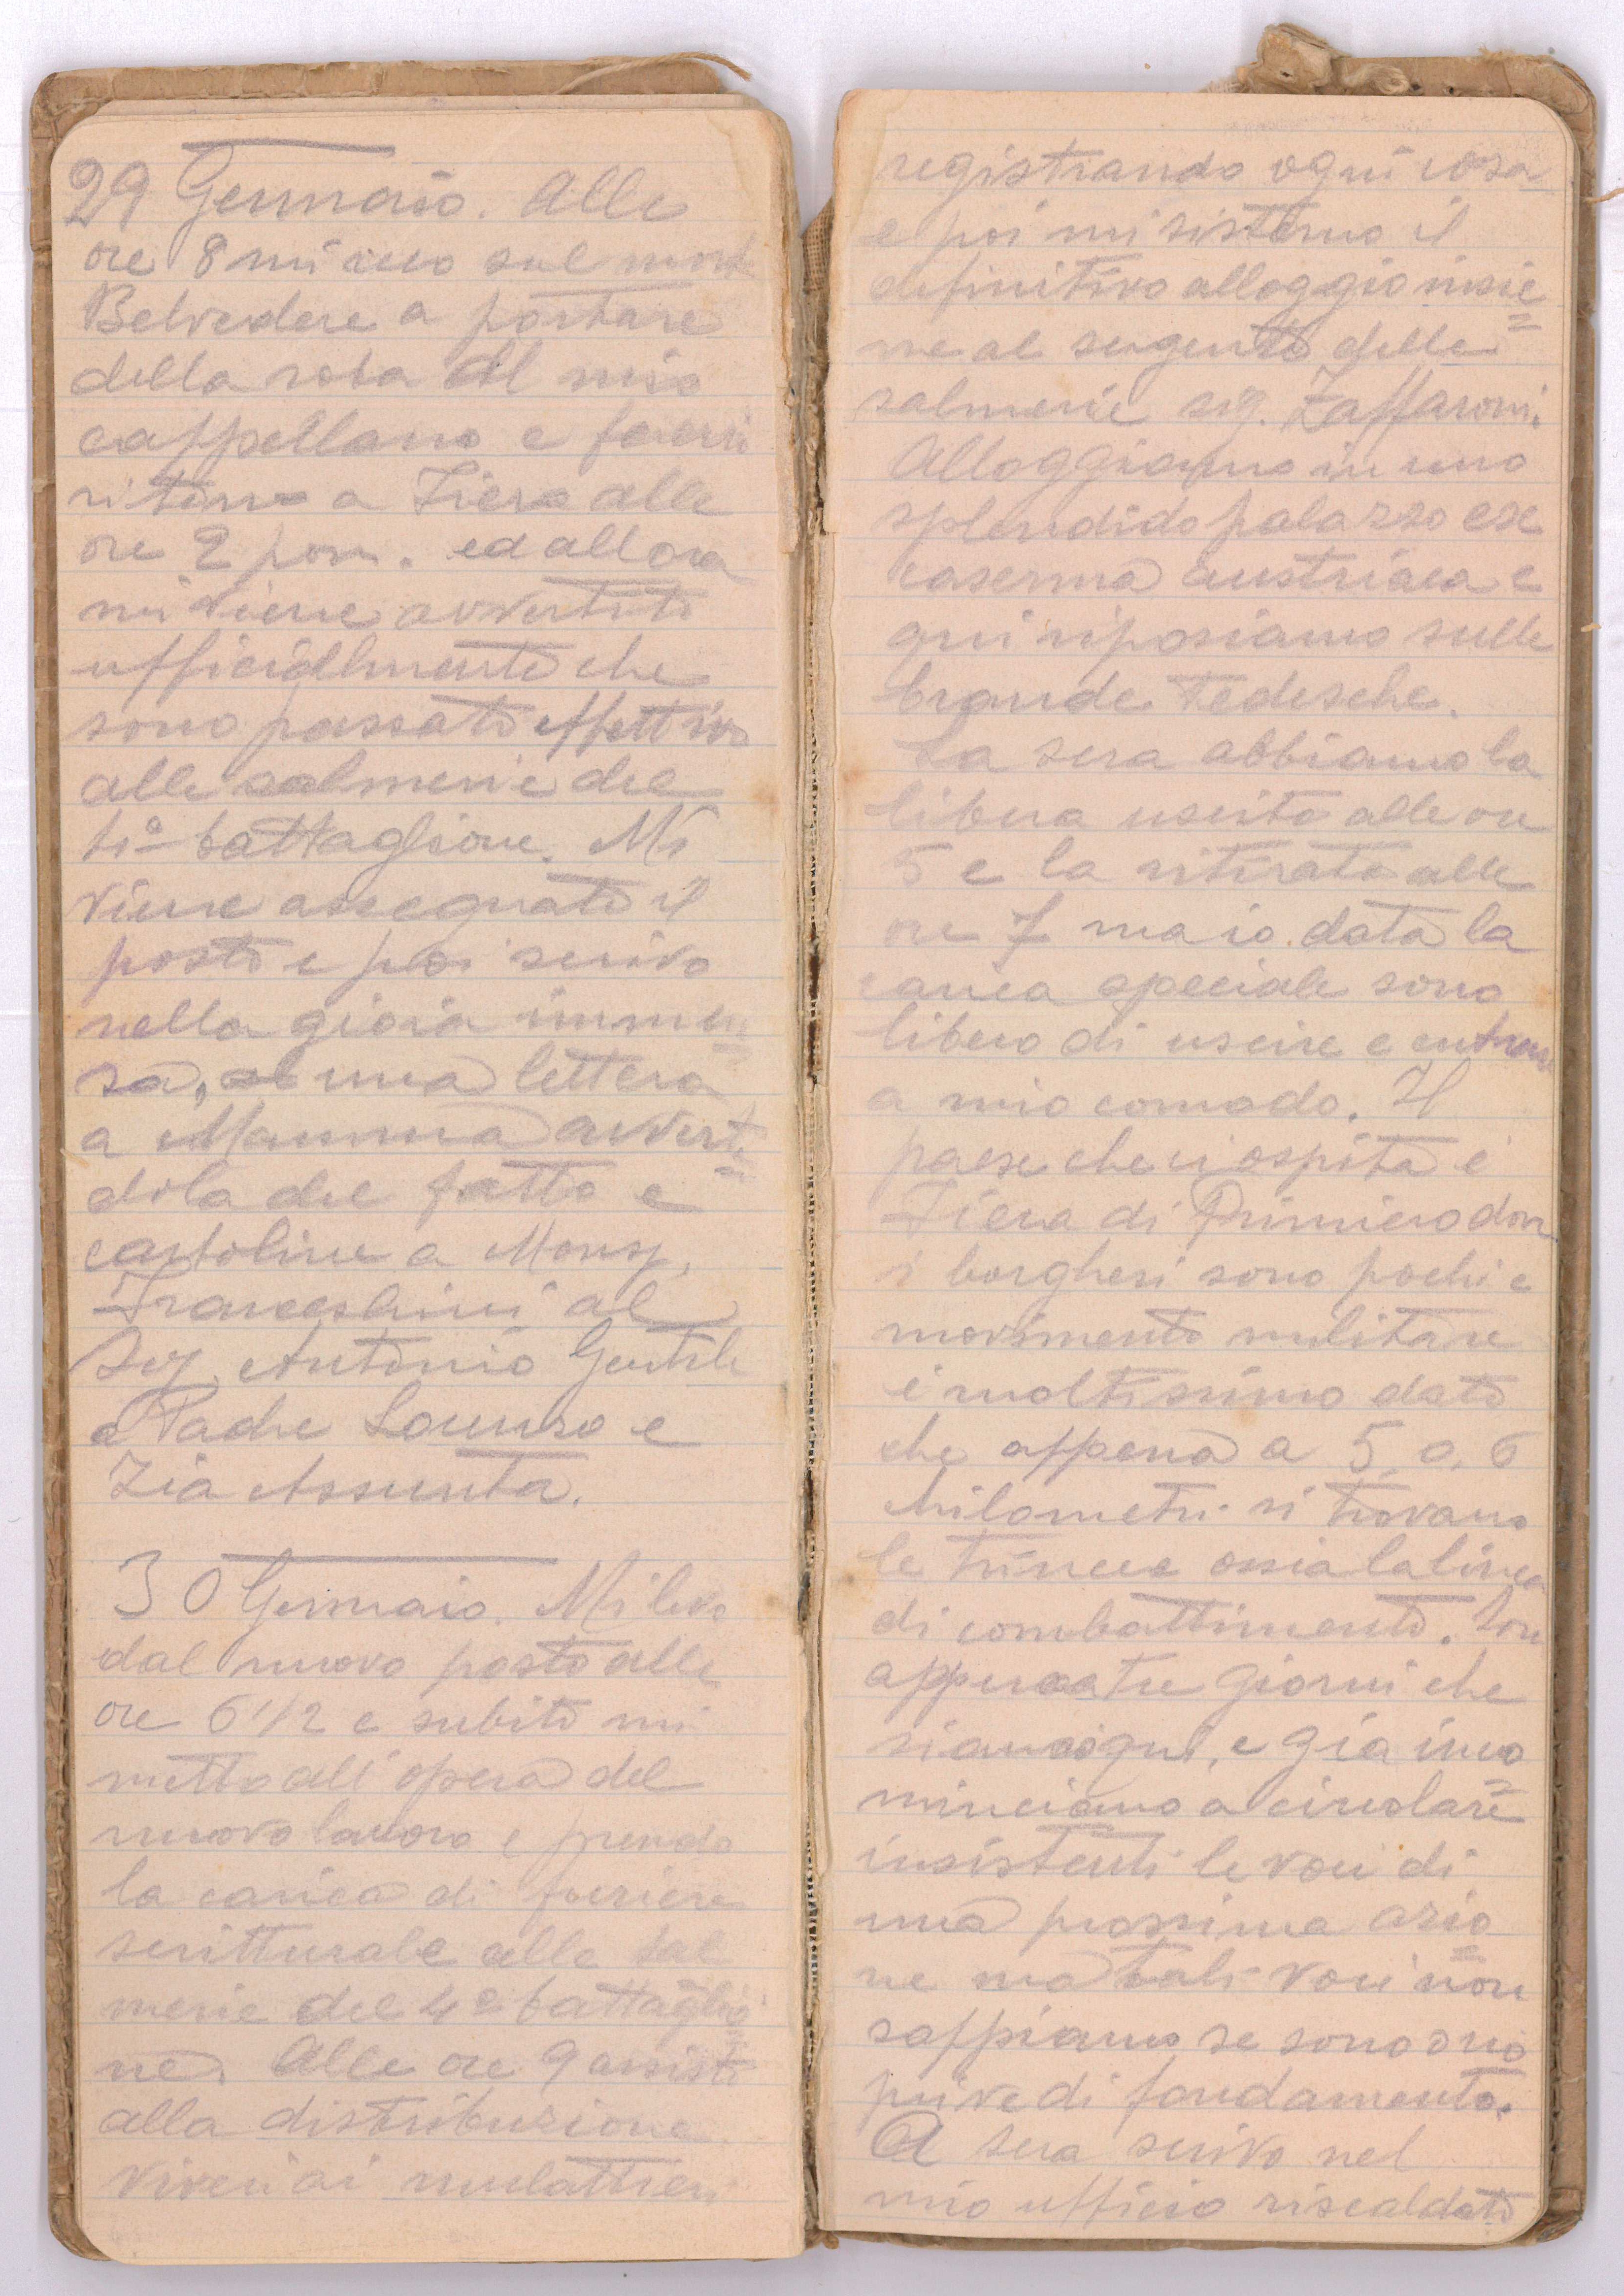 29 Gennaio. Alle
ore 8 mi reco sul mont
Belvedere a portare
della roba al mio
cappellano e
ritorno a Fiera alle
ore 2 pom. ed allora
mi viene avvertito
ufficialmente che
sono passato effettivo
alle salmerie del
4º battaglione. Mi
viene assegnato il
posto e poi scrivo
nella gioia immen=
sa, una lettera
a Mamma averten=
dola del fatto e
cartoline a Mons.
Franceschini al
Sig. Antonio Gentile
a Padre Lorenzo e
Zia Assunta.
30 Gennaio. Mi levo
dal nuovo posto alle
ore 6 1/2 e subito mi
metto all'opera del
nuovo lavoro e prendo
la carica di furiere
scritturale alle sal
merie del 4º battaglio=
ne. Alle ore 9 assisto
alla distribuzione
viveri ai mulattieri
registrando ogni cosa
e poi mi sistemo il
definitivo alloggio insie=
me al sergente delle
salmerie sig. Zaffaroni.
Alloggiamo in uno
splendido palazzo ex
caserma austriaca e
qui riposiamo sulle
brande tedesche.
La sera abbiamo la
libera uscita alle ore
5 e la ritirata alle
ore 7 ma io. data la
carica speciale sono
libero di uscire e entrare
a mio comodo. Il
paese che ci ospita è
Fiera di Primiero dov
i borghesi sono pochi e
movimento militare
è moltissimo dato
che appena a 5. o. 6
chilometri si trovano
le trincee ossia la linea
di combattimento. Son
appena tre giorni che
siamo qui, e già inco=
minciamo a circolare
insistenti le voci di
una prossima azio=
ne ma tali voci non
sappiamo se sono o no
prive di fondamento.
A sera scrivo nel
mio ufficio riscaldato